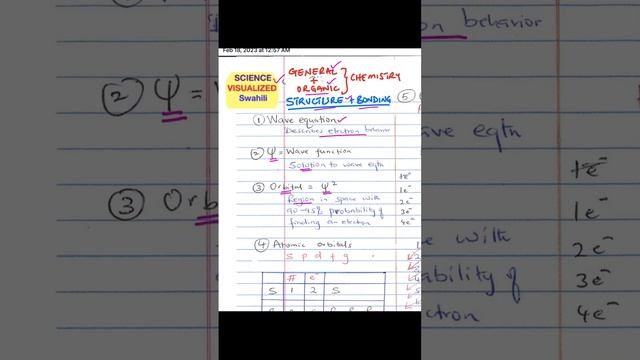 Feb 18, 2023 at 12:57 AM
SCIENCE
VISUALIZED
Swahili
GENERAL
+
ORGANIC
CHEMISTRY
STRUCTURE + BONDING
① Wave equation
Describes electron behavior
② Ψ = Wave function
Solution to wave eqtn
③ Orbital = Ψ²
Region in space with
90-95% probability of
finding an electron
1e⁻
2e⁻
3e⁻
4e⁻
④ Atomic orbitals
s p d f g
# e⁻
S 1 2 S
⑤
behavior
② Ψ =
③ Orb
ave eqtn
with
ability of
ctron
1e⁻
2e⁻
3e⁻
4e⁻